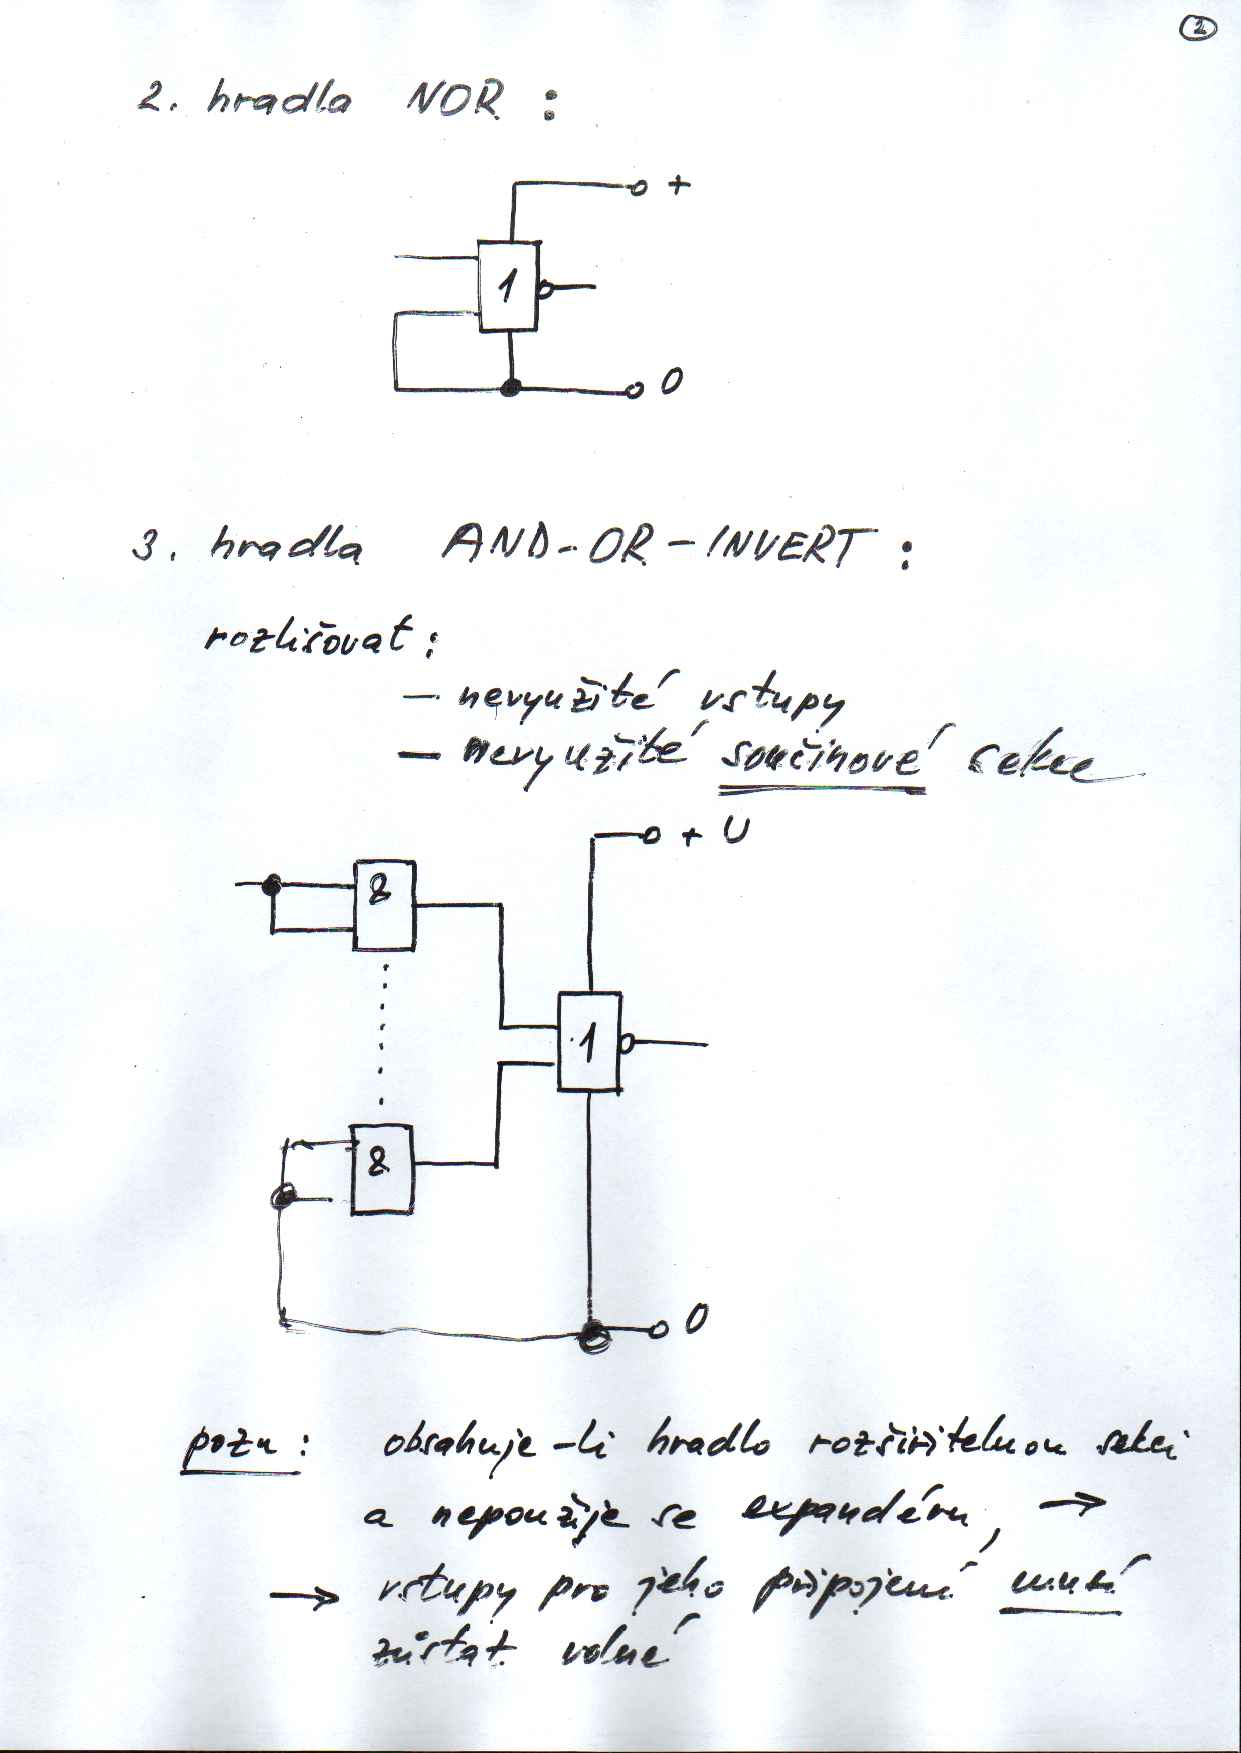 2
2. hradla NOR :
+
1
0
3. hradla AND-OR-INVERT :
rozlišovat :
– nevyužité vstupy
– nevyužité součinové sekce
+ U
&
1
&
0
pozn : obsahuje-li hradlo rozšiřitelnou sekci
a nepoužije se expandéru, →
→ vstupy pro jeho připojení musí
zůstat volné